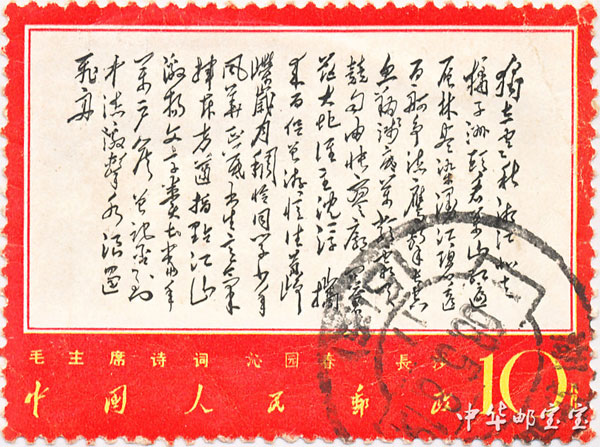 獨立寒秋湘江北去
橘子洲頭看万山红遍
层林尽染漫江碧透
百舸争流鹰擊长空
鱼翔浅底万类霜天
竞自由怅寥廓问苍
茫大地谁主沉浮 携
来百侣曾游忆往昔峥
嵘岁月稠恰同学少年
风华正茂书生意气
挥斥方遒指點江山
激扬文字粪土当年
万户侯曾记否到
中流擊水浪遏
飛舟
毛主席诗词 沁园春 長沙
中國人民郵政 10
中华邮宝宝